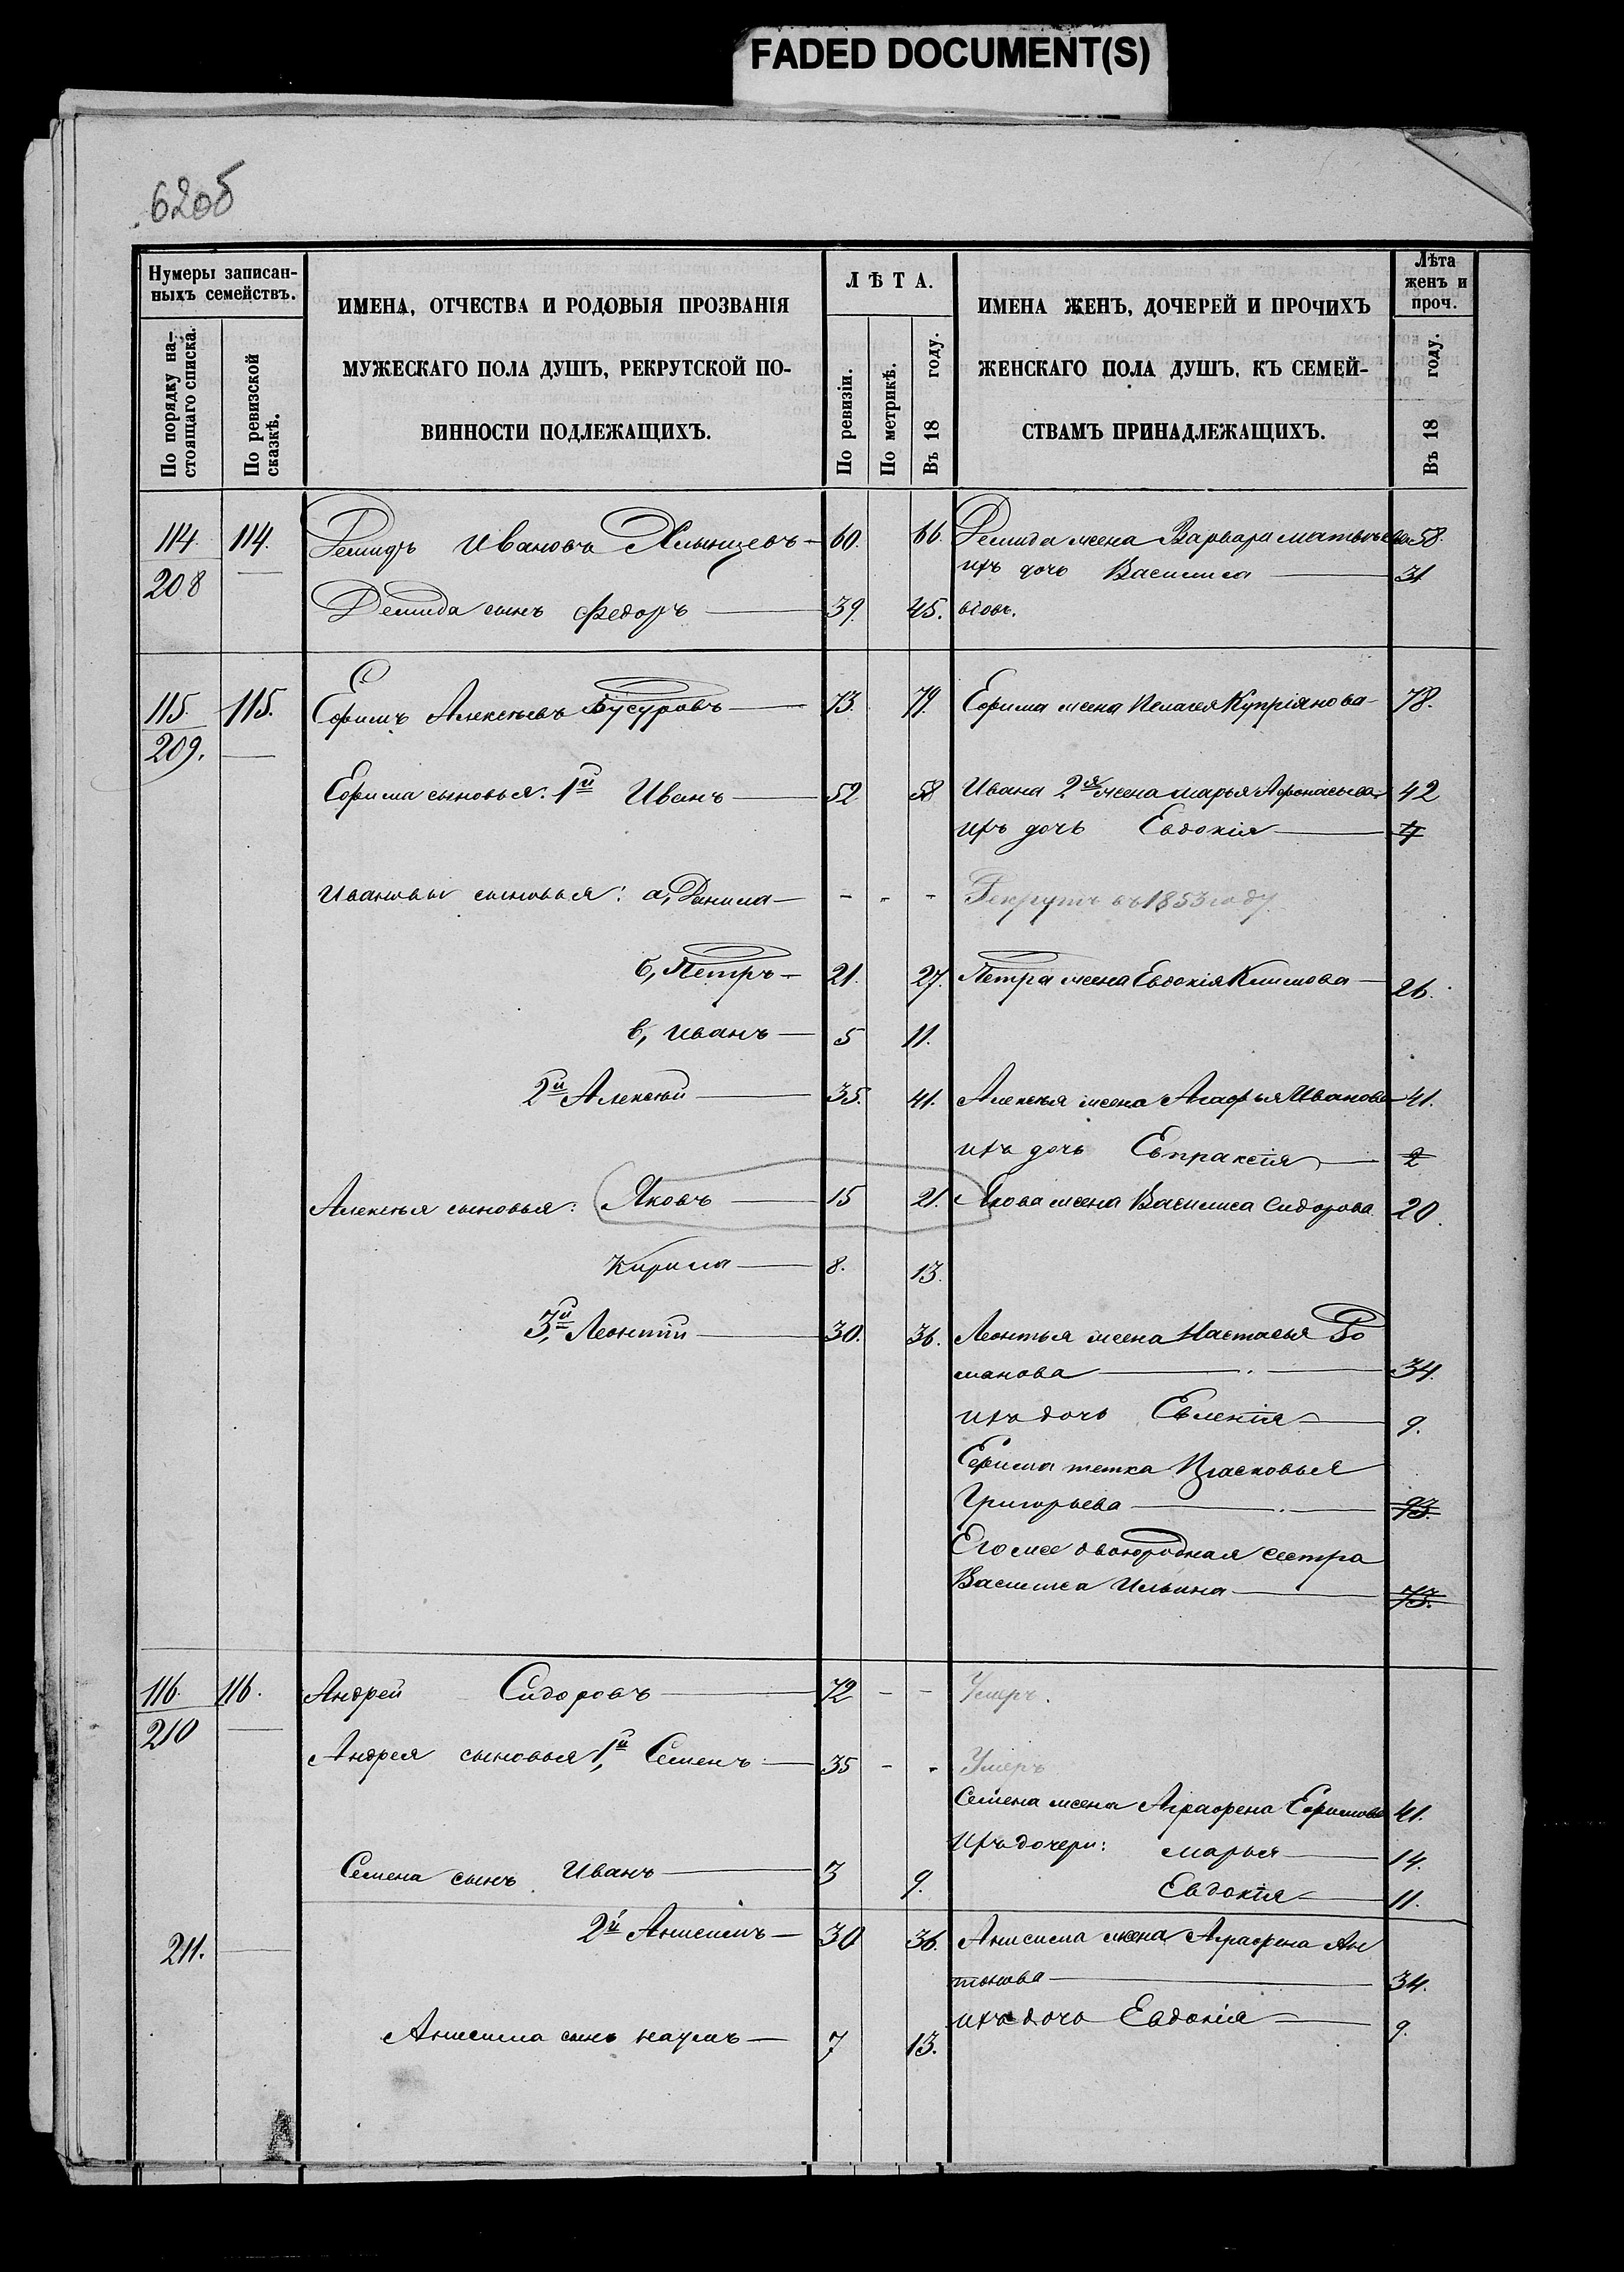 FADED DOCUMENT(S)
62об
Нумеры записан-
ныхъ семействъ.
По порядку на-
стоящаго списка.
По ревизской
сказкѣ.
ИМЕНА, ОТЧЕСТВА И РОДОВЫЯ ПРОЗВАНІЯ
МУЖЕСКАГО ПОЛА ДУШЪ, РЕКРУТСКОЙ ПО-
ВИННОСТИ ПОДЛЕЖАЩИХЪ.
ЛѢТА.
По ревизіи.
По метрикѣ.
Въ 18 году.
ИМЕНА ЖЕНЪ, ДОЧЕРЕЙ И ПРОЧИХЪ
ЖЕНСКАГО ПОЛА ДУШЪ, КЪ СЕМЕЙ-
СТВАМЪ ПРИНАДЛЕЖАЩИХЪ.
Лѣта
женъ и
проч.
Въ 18 году.
114. 114. Демидъ Ивановъ Хлынцевъ — 60. 66. Демида жена Варвара Матвѣева 58.
208 — ихъ дочь Василиса — 31
Демида сынъ Федоръ — 39. 45. вдовъ.
115. 115. Ефимъ Алексѣевъ Бусуровъ — 73. 79. Ефима жена Пелагея Купріянова — 78.
209. —
Ефима сыновья: 1й Иванъ — 52 58 Ивана 2я жена Марья Афонасьева 42
ихъ дочь Евдокія — 4
Ивановы сыновья: а, Данила — - - - Рекрутъ въ 1853 году.
б, Петръ — 21. 27. Петра жена Евдокія Климова — 26.
в, Иванъ — 5 11.
2й Алексѣй — 35. 41. Алексѣя жена Агафья Иванова 41.
ихъ дочь Евпраксія — 2
Алексѣя сыновья: Яковъ — 15 21. Якова жена Василиса Сидорова 20.
Кирила — 8. 13.
3й, Леонтій — 30. 36. Леонтья жена Настасья Ро
манова — 34.
ихъ дочь — 9.
Ефима тетка Прасковья
Григорьева — 93.
Его же двоюродная сестра
Василиса Ильина — 73.
116. 116. Андрей Сидоровъ — 72 - - Умеръ.
210 —
Андрея сыновья 1й, Семенъ — 35 - - Умеръ
Семена жена Аграфена Ефимова 41.
ихъ дочери: Марья — 14.
Семена сынъ Иванъ — 3 9.
Евдокія — 11.
2й Анисимъ — 30 36. Анисима жена Аграфена Ан
211. — тонова — 34.
ихъ дочь Евдокія — 9.
Анисима сынъ Наумъ — 7 13.